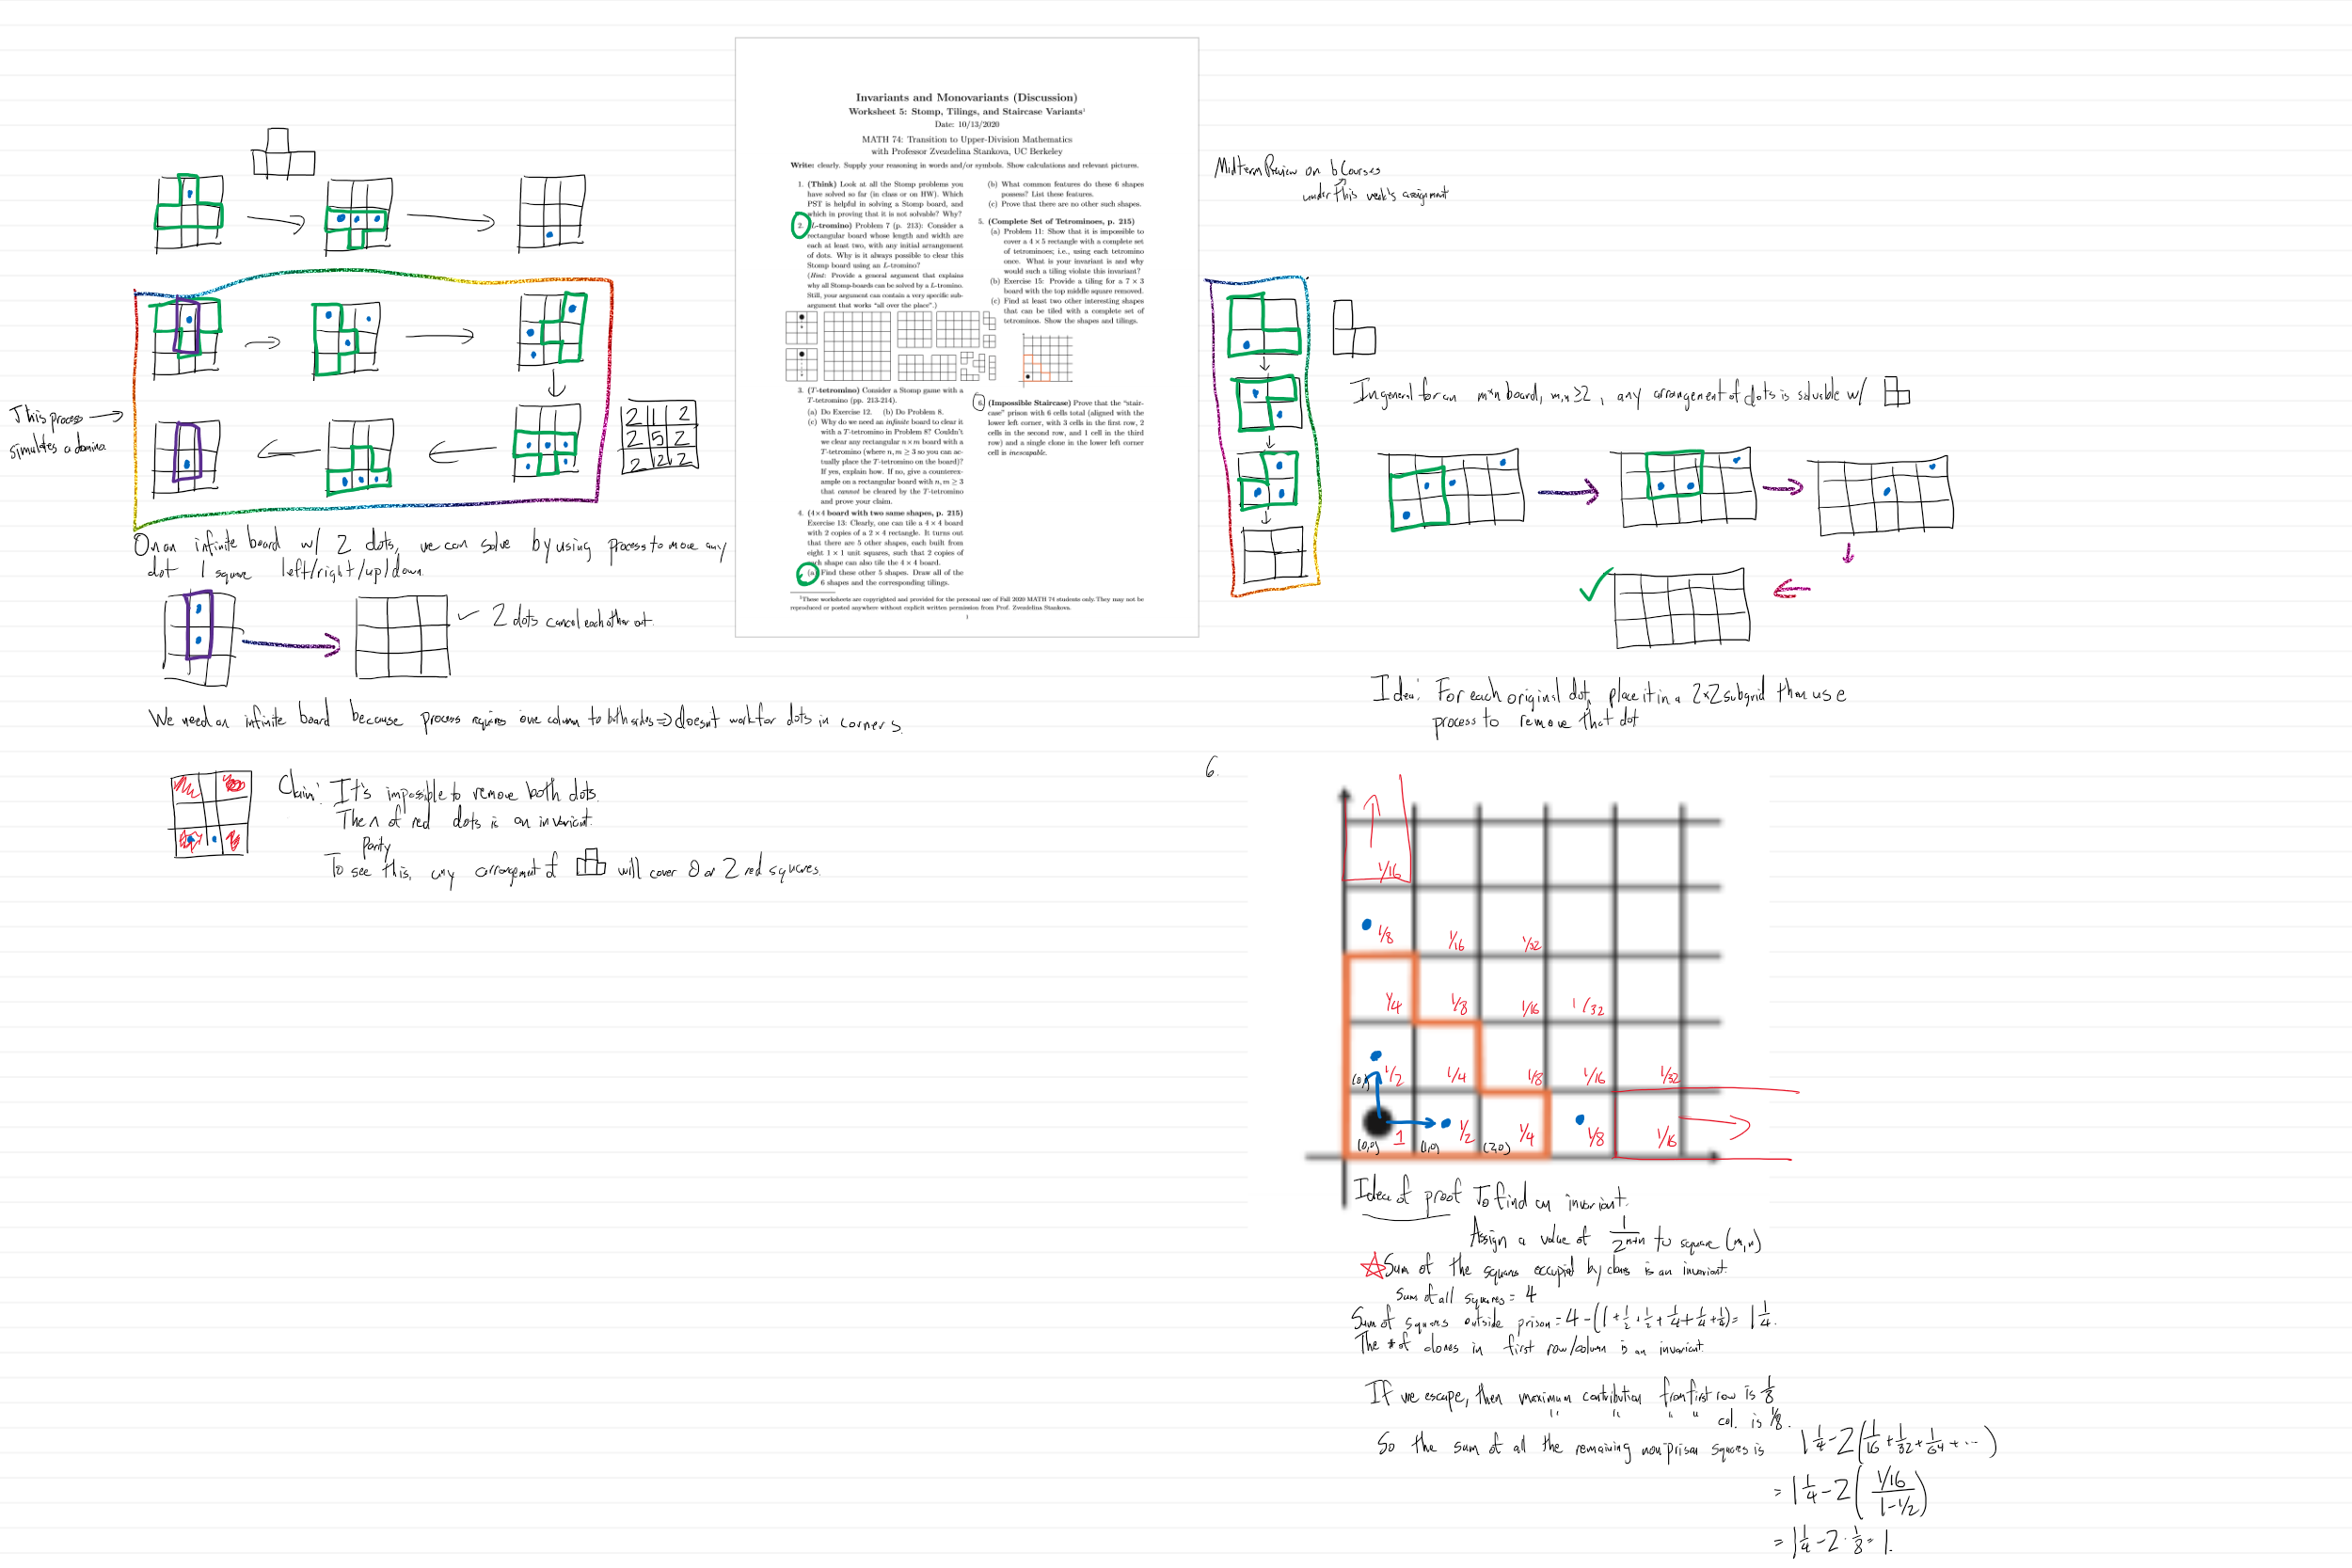 Invariants and Monovariants (Discussion)
Worksheet 5: Stomp, Tilings, and Staircase Variants¹
Date: 10/13/2020
MATH 74: Transition to Upper-Division Mathematics
with Professor Zvezdelina Stankova, UC Berkeley
Write: clearly. Supply your reasoning in words and/or symbols. Show calculations and relevant pictures.
1. (Think) Look at all the Stomp problems you
have solved so far (in class or on HW). Which
PST is helpful in solving a Stomp board, and
which in proving that it is not solvable? Why?
2. (L-tromino) Problem 7 (p. 213): Consider a
rectangular board whose length and width are
each at least two, with any initial arrangement
of dots. Why is it always possible to clear this
Stomp board using an L-tromino?
(Hint: Provide a general argument that explains
why all Stomp-boards can be solved by a L-tromino.
Still, your argument can contain a very specific sub-
argument that works "all over the place".)
3. (T-tetromino) Consider a Stomp game with a
T-tetromino (pp. 213-214).
(a) Do Exercise 12. (b) Do Problem 8.
(c) Why do we need an infinite board to clear it
with a T-tetromino in Problem 8? Couldn't
we clear any rectangular n×m board with a
T-tetromino (where n, m ≥ 3 so you can ac-
tually place the T-tetromino on the board)?
If yes, explain how. If no, give a counterex-
ample on a rectangular board with n, m ≥ 3
that cannot be cleared by the T-tetromino
and prove your claim.
4. (4×4 board with two same shapes, p. 215)
Exercise 13: Clearly, one can tile a 4 × 4 board
with 2 copies of a 2 × 4 rectangle. It turns out
that there are 5 other shapes, each built from
eight 1 × 1 unit squares, such that 2 copies of
each shape can also tile the 4 × 4 board.
(a) Find these other 5 shapes. Draw all of the
6 shapes and the corresponding tilings.
(b) What common features do these 6 shapes
possess? List these features.
(c) Prove that there are no other such shapes.
5. (Complete Set of Tetrominoes, p. 215)
(a) Problem 11: Show that it is impossible to
cover a 4 × 5 rectangle with a complete set
of tetrominoes; i.e., using each tetromino
once. What is your invariant is and why
would such a tiling violate this invariant?
(b) Exercise 15: Provide a tiling for a 7 × 3
board with the top middle square removed.
(c) Find at least two other interesting shapes
that can be tiled with a complete set of
tetrominos. Show the shapes and tilings.
6. (Impossible Staircase) Prove that the "stair-
case" prison with 6 cells total (aligned with the
lower left corner, with 3 cells in the first row, 2
cells in the second row, and 1 cell in the third
row) and a single clone in the lower left corner
cell is inescapable.
¹These worksheets are copyrighted and provided for the personal use of Fall 2020 MATH 74 students only. They may not be
reproduced or posted anywhere without explicit written permission from Prof. Zvezdelina Stankova.
1
This process
simulates a domino
2 1 2
2 5 2
2 2 2
On an infinite board w/ 2 dots, we can solve by using process to move any
dot 1 square left/right/up/down.
2 dots cancel each other out.
We need an infinite board because process requires one column to both sides => doesn't work for dots in corners.
Claim: It's impossible to remove both dots.
The n of red dots is an invariant.
Parity
To see this, any arrangement of will cover 0 or 2 red squares.
Midterm Review on bCourses
under this week's assignment
In general for an m×n board, m,n ≥ 2, any arrangement of dots is solvable w/
Idea: For each original dot, place it in a 2×2 subgrid then use
process to remove that dot
6.
1/16
1/8 1/16 1/32
1/4 1/8 1/16 1/32
(0,1) 1/2 1/4 1/8 1/16 1/32
(0,0) 1 (1,0) 1/2 (2,0) 1/4 1/8 1/16
Idea of proof To find an invariant.
Assign a value of 1/2^(m+n) to square (m,n)
Sum of the squares occupied by clones is an invariant.
Sum of all squares = 4
Sum of squares outside prison = 4 - (1 + 1/2 + 1/2 + 1/4 + 1/4 + 1/4) = 1 1/4.
The # of clones in first row/column is an invariant.
If we escape, then maximum contribution from first row is 1/8
" " " " col. is 1/8.
So the sum of all the remaining nonprison squares is 1 1/4 - 2(1/16 + 1/32 + 1/64 + ...)
= 1 1/4 - 2((1/16)/(1 - 1/2))
= 1 1/4 - 2 · 1/8 = 1.